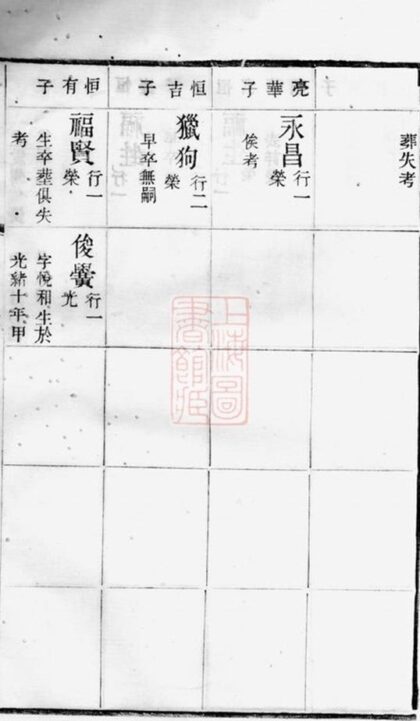 葬失考
亮華子
永昌
行一
榮
俟考
恒吉子
獵狗
行二
榮
早卒無嗣
恒有子
福賢
行一
榮
生卒塟俱失
考
俊黌
行一
光
字悅和生於
光緒十年甲
上海圖
書館藏